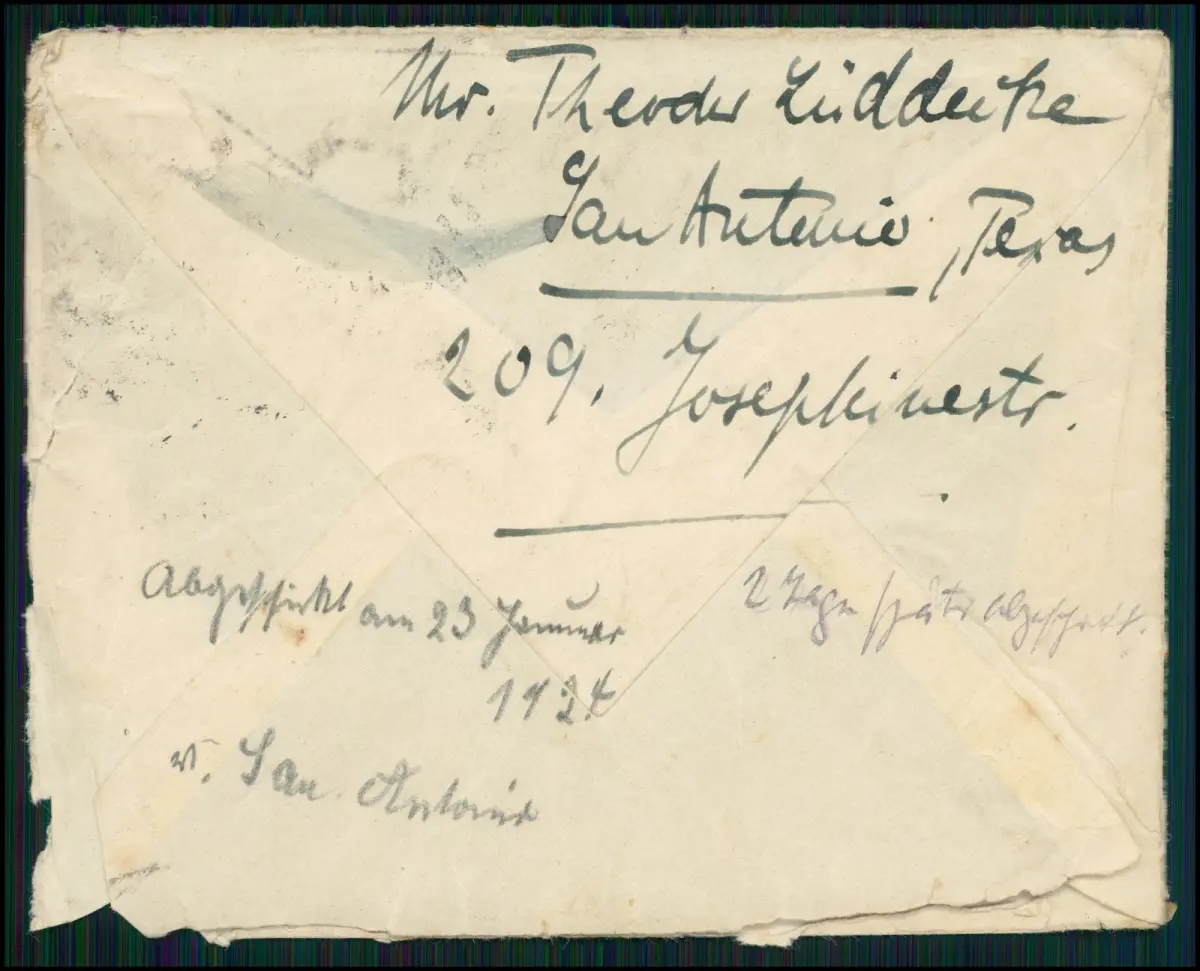 Mr. Theodor Lüddecke
San Antonio, Texas
209. Josephinestr.
Abgeschickt am 23 Januar
1924
v. San Antonio
2 Tage später abgeschickt.